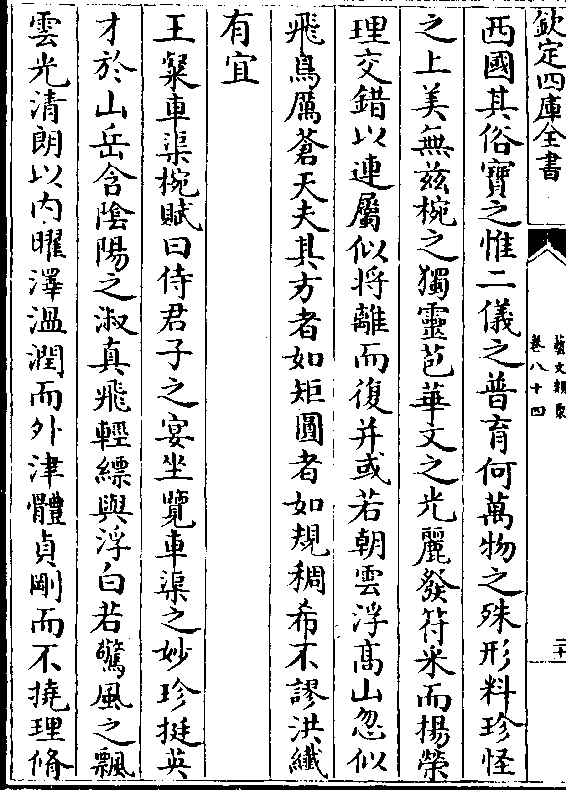 欽定四庫全書
藝文類聚
卷八十四
二十
西國其俗寶之惟二儀之普育何萬物之殊形料珍怪
之上美無兹椀之獨靈苞華文之光麗發符采而揚榮
理交錯以連屬似将離而復并或若朝雲浮髙山忽似
飛鳥厲蒼天夫其方者如矩圓者如規稠希不謬洪纎
有宜
王粲車渠椀賦曰侍君子之宴坐覽車渠之妙珍挺英
才於山岳含陰陽之淑真飛輕縹與浮白若驚風之飄
雲光清朗以内曜澤温潤而外津體貞剛而不撓理脩